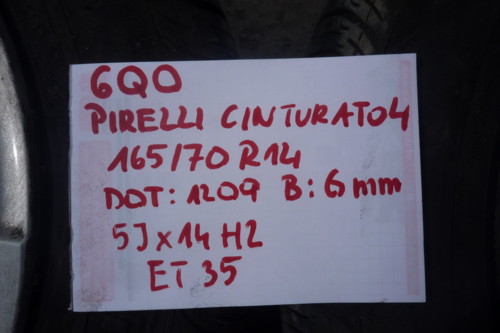 6Q0
PIRELLI CINTURATO4
165/70 R14
DOT: 1209 B: 6mm
5Jx14 H2
ET 35